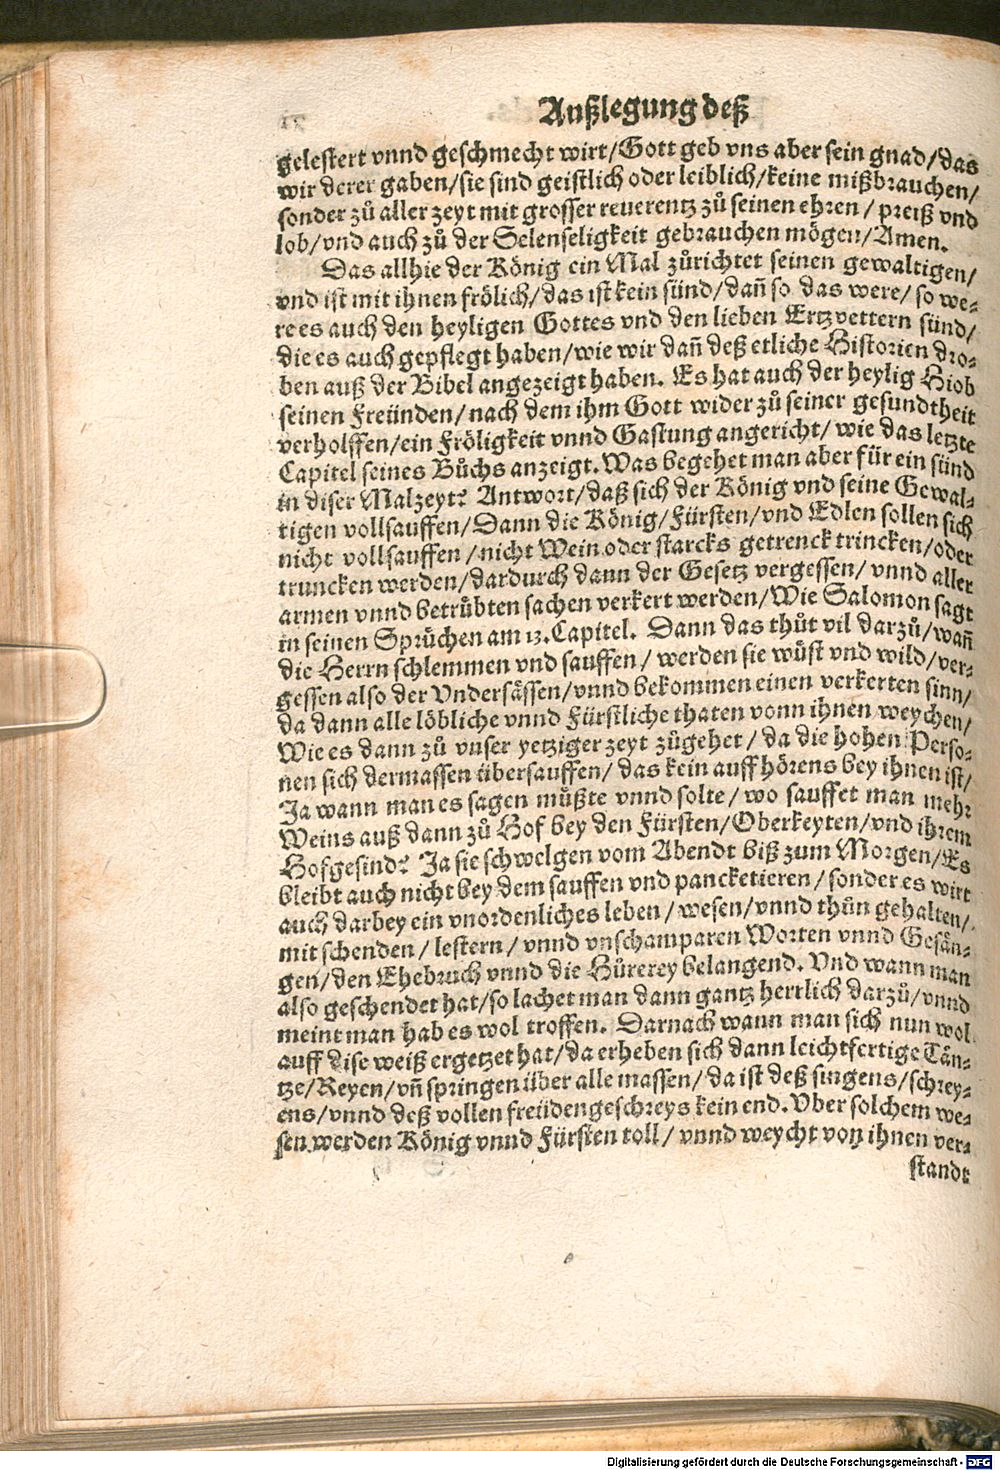 Außlegung deß
gelestert vnnd geschmecht wirt/Gott geb vns aber sein gnad/das
wir derer gaben/sie sind geistlich oder leiblich/keine mißbrauchen/
sonder zů aller zeyt mit grosser reuerentz zů seinen ehren/ preiß vnd
lob/vnd auch zů der Selenseligkeit gebrauchen mögen/Amen.
Das allhie der König ein Mal zůrichtet seinen gewaltigen/
vnd ist mit ihnen frölich/das ist kein sünd/dañ so das were/ so we-
re es auch den heyligen Gottes vnd den lieben Ertzvettern sünd/
die es auch gepflegt haben/wie wir dañ deß etliche Historien dro-
ben auß der Bibel angezeigt haben. Es hat auch der heylig Hiob
seinen Freünden/nach dem ihm Gott wider zů seiner gesundtheit
verholffen/ein Fröligkeit vnnd Gastung angericht/ wie das letzte
Capitel seines Bůchs anzeigt. Was begehet man aber für ein sünd
in diser Malzeyt? Antwort/daß sich der König vnd seine Gewal-
tigen vollsauffen/Dann die König/Fürsten/vnd Edlen sollen sich
nicht vollsauffen/nicht Wein oder starcks getrenck trincken/oder
truncken werden/dardurch dann der Gesetz vergessen/ vnnd aller
armen vnnd betrůbten sachen verkert werden/Wie Salomon sagt
in seinen Sprüchen am 13. Capitel. Dann das thůt vil darzů/wañ
die Herrn schlemmen vnd sauffen/ werden sie wüst vnd wild/ver-
gessen also der Vndersässen/vnnd bekommen einen verkerten sinn/
da dann alle löbliche vnnd Fürstliche thaten vonn ihnen weychen/
Wie es dann zů vnser yetziger zeyt zůgehet/ da die hohen Perso-
nen sich dermassen übersauffen/ das kein auffhörens bey ihnen ist/
Ja wann man es sagen müßte vnnd solte/ wo sauffet man mehr
Weins auß dann zů Hof bey den Fürsten/Oberkeyten/vnd ihrem
Hofgesind? Ja sie schwelgen vom Abendt biß zum Morgen/Es
bleibt auch nicht bey dem sauffen vnd pancketieren/ sonder es wirt
auch darbey ein vnordenliches leben/ wesen/vnnd thůn gehalten/
mit schenden/ lestern/ vnnd vnschamparen Worten vnnd Gesän-
gen/den Ehebruch vnnd die Hůrerey belangend. Vnd wann man
also geschendet hat/so lachet man dann gantz hertlich darzů/vnnd
meint man hab es wol troffen. Darnach wann man sich nun wol
auff dise weiß ergetzet hat/da erheben sich dann leichtfertige Tän-
tze/Reyen/vñ springen über alle massen/ da ist deß singens/schrey-
ens/vnnd deß vollen freüdengeschreys kein end. Vber solchem we-
sen werden König vnnd Fürsten toll/ vnnd weycht von ihnen ver-
standt
Digitalisierung gefördert durch die Deutsche Forschungsgemeinschaft - DFG